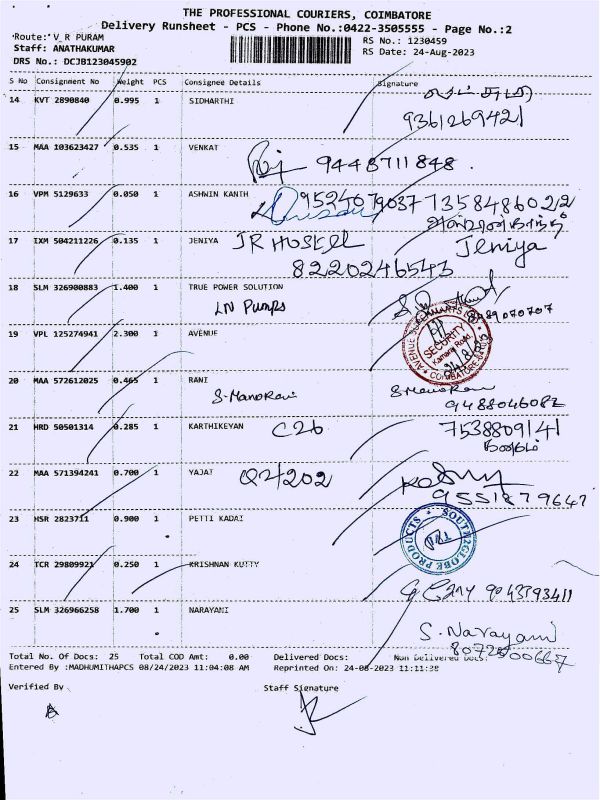 THE PROFESSIONAL COURIERS, COIMBATORE
Delivery Runsheet - PCS - Phone No.:0422-3505555 - Page No.:2
Route: V R PURAM
RS No.: 1230459
Staff: ANATHAKUMAR
RS Date: 24-Aug-2023
DRS No.: DCJB123045902
S No Consignment No Weight PCS Consignee Details Signature
14 KVT 2890840 0.995 1 SIDHARTHI
9361269421
15 MAA 103623427 0.535 1 VENKAT 9448711848
16 VPM 5129633 0.050 1 ASHWIN KANTH 9524079037 7358486022
17 IXM 504211226 0.135 1 JENIYA JR HOSTEL Jeniya
8220246543
18 SLM 326900883 1.400 1 TRUE POWER SOLUTION
LN Pumps
19 VPL 125274941 2.300 1 AVENUE
AVENUE SUPERMARTS
SECURITY
Kamaraj Road,
COIMBATORE
20 MAA 572612025 0.465 1 RANI
S-Manorani S Manorani
9488046082
21 HRD 50501314 0.285 1 KARTHIKEYAN C26 7538809141
22 MAA 571394241 0.700 1 YAJAT Q2/202
9551879647
23 HSR 2823711 0.900 1 PETTI KADAI
SOUTH2GLOBE PRODUCTS
24 TCR 29809921 0.250 1 KRISHNAN KUTTY
9043793411
25 SLM 326966258 1.700 1 NARAYANI
S. Narayani
Total No. Of Docs: 25 Total COD Amt: 0.00 Delivered Docs: Non Delivered Docs:
Entered By :MADHUMITHAPCS 08/24/2023 11:04:08 AM Reprinted On: 24-08-2023 11:11:38
Verified By
Staff Signature